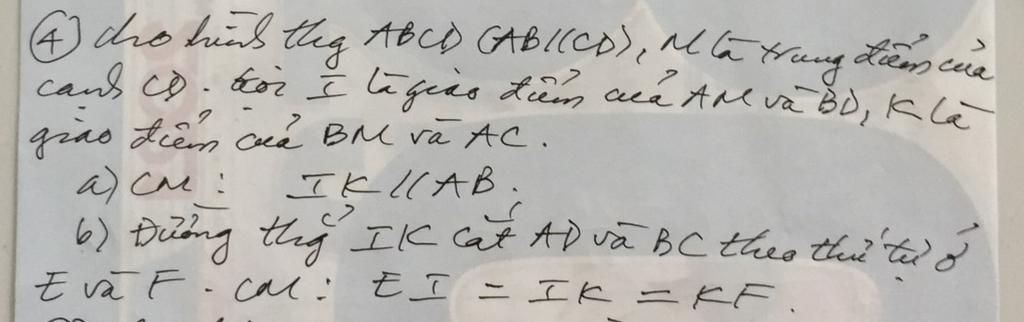 ④ cho hình thg ABCD (AB//CD), M là trung điểm của
cạnh CD. Gọi I là giao điểm của AM và BD, K là
giao điểm của BM và AC.
a) CM: IK//AB.
b) Đường thg IK cắt AD và BC theo thứ tự ở
E và F. CM: EI = IK = KF.